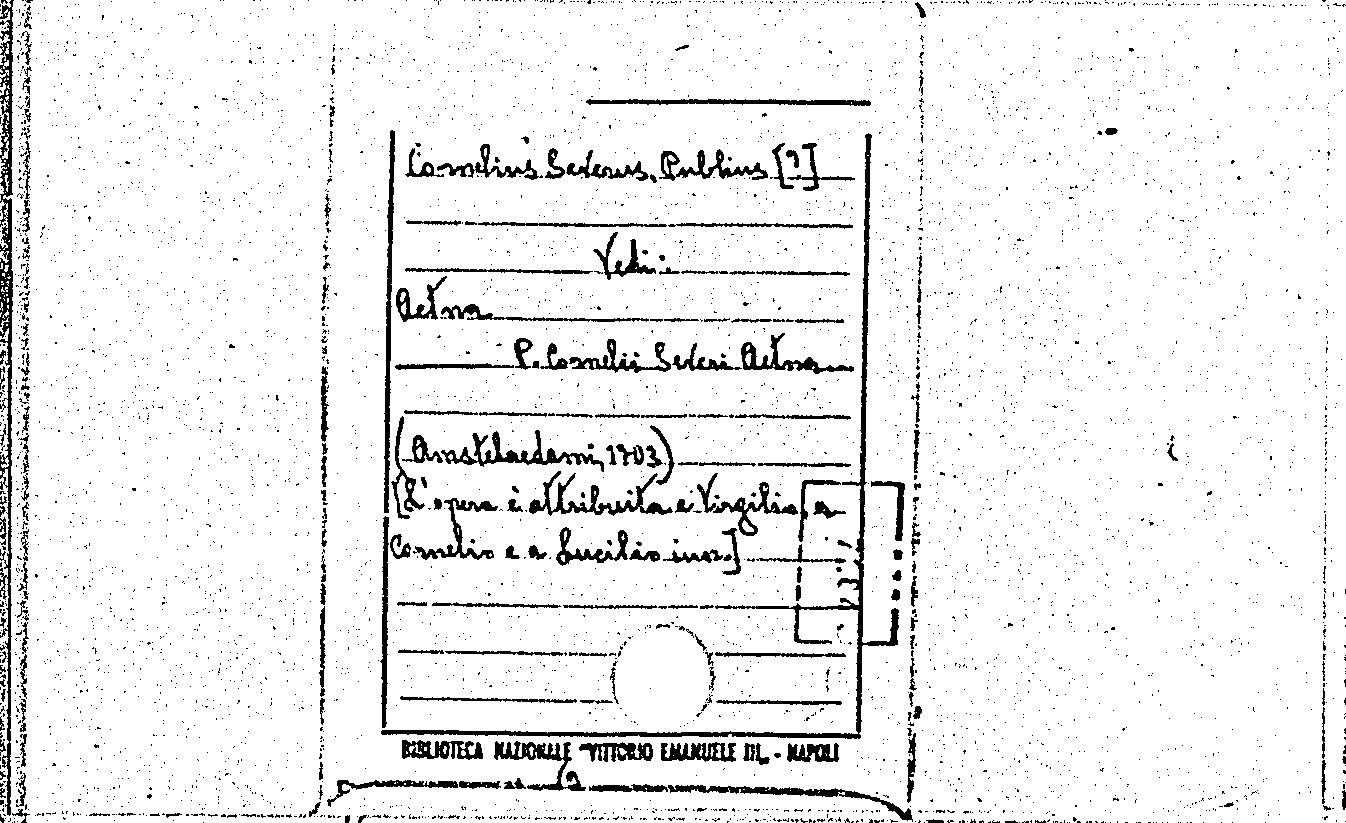 Cornelius Severus, Publius [?]
Vedi:
Aetna
P. Cornelii Severi Aetna
(Amstelaedami, 1703)
[L'opera è attribuita a Virgilio, a
Cornelio e a Lucilio iun.]
BIBLIOTECA NAZIONALE "VITTORIO EMANUELE III" - NAPOLI